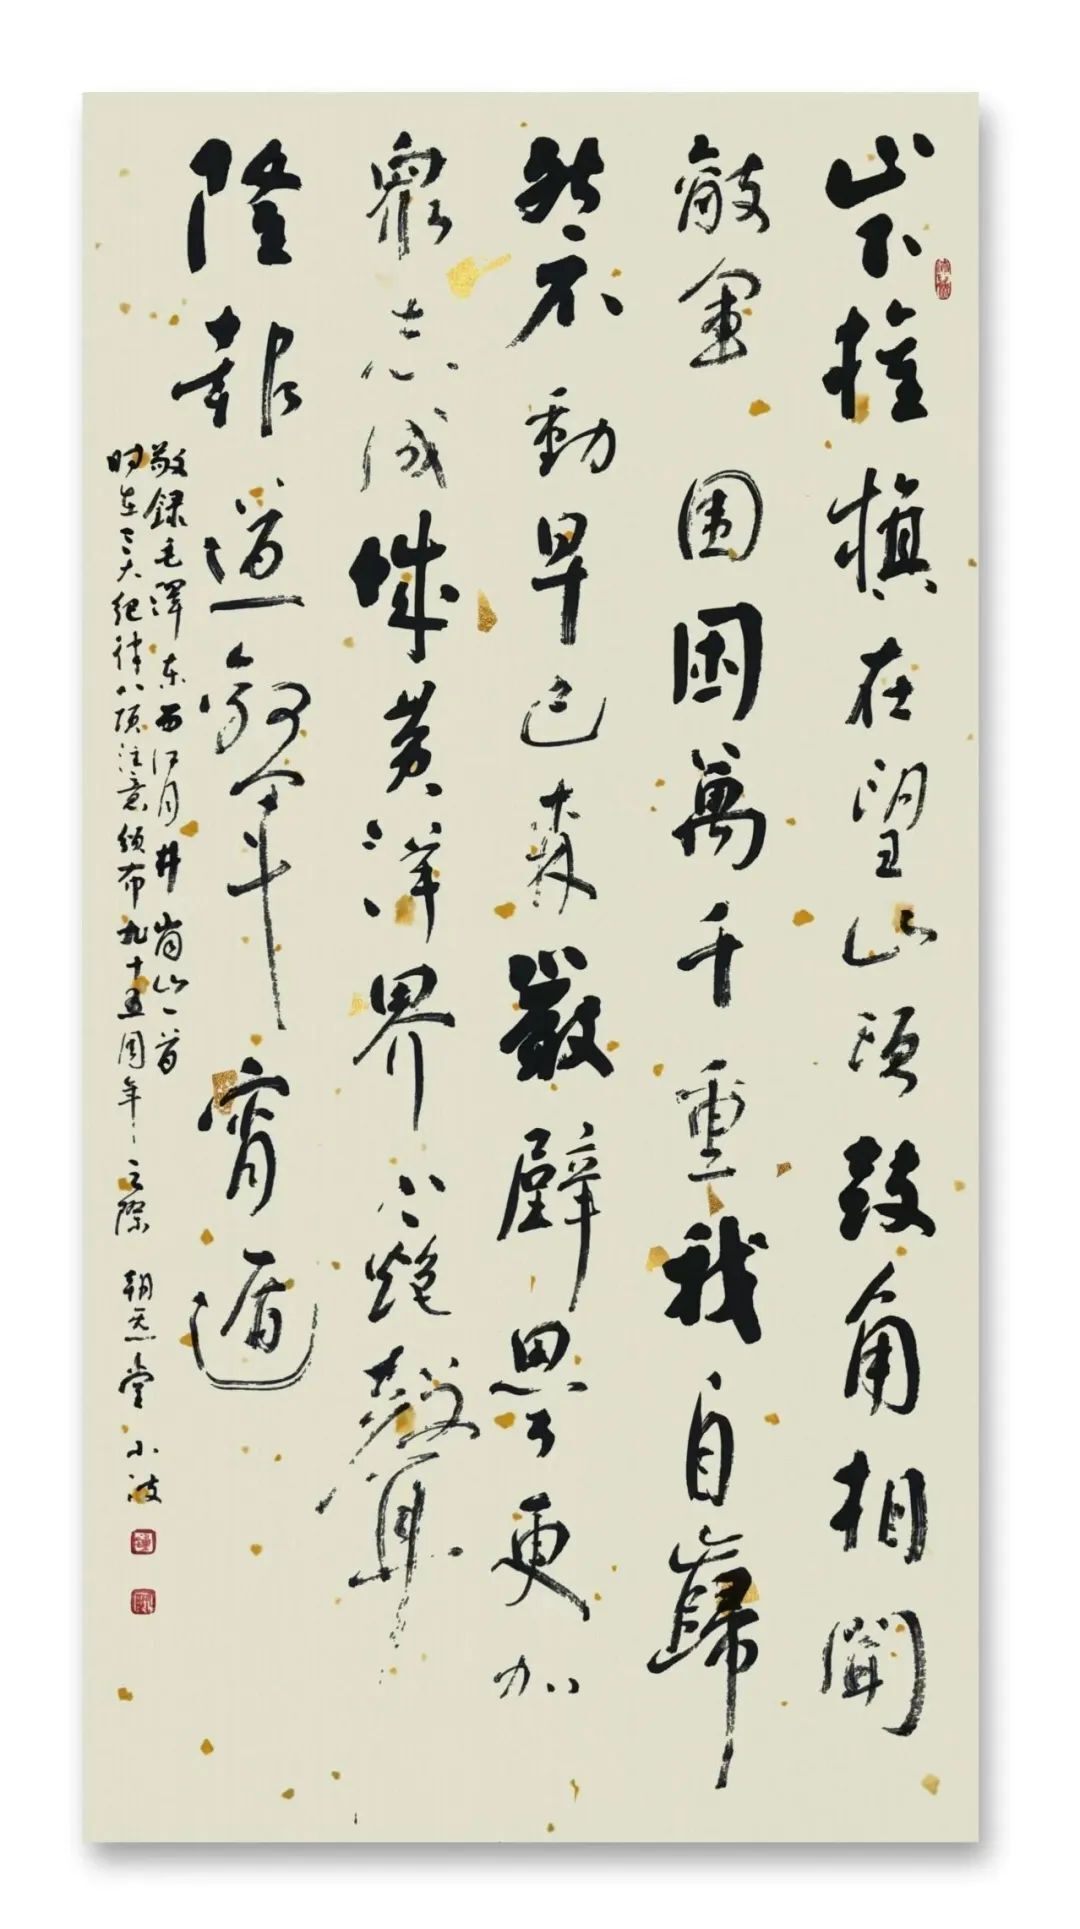 山下旌旗在望山頭鼓角相聞
敵軍圍困萬千重我自巋
然不動早已森嚴壁壘更加
衆志成城黄洋界上炮聲
隆報道敵軍宵遁
敬録毛澤东西江月井岗山一首
时在三大纪律八项注意颁布九十五周年之際 朝炁堂 小波